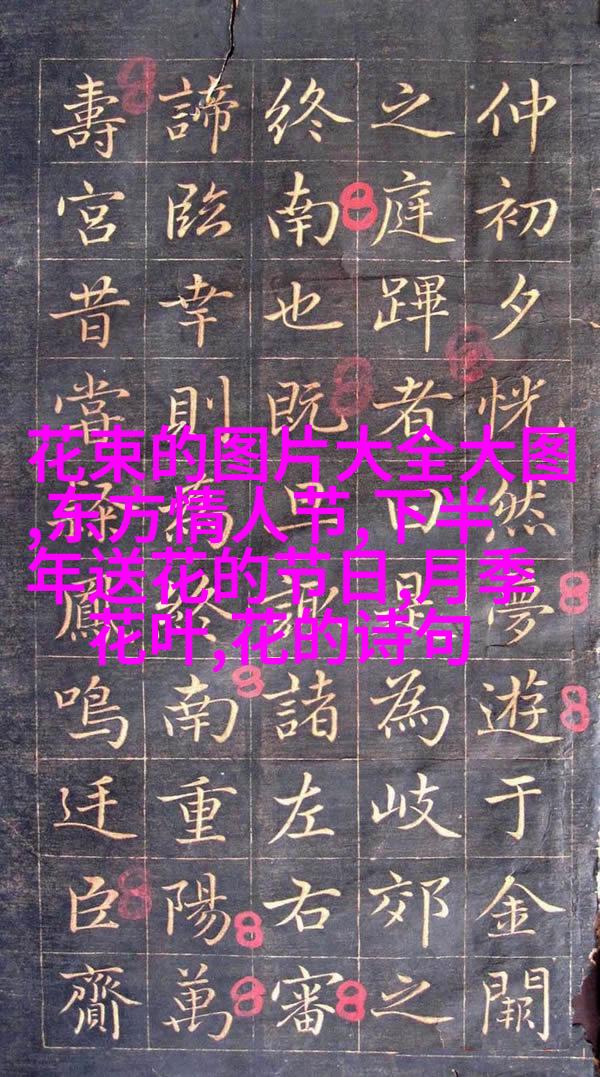 花束的图片大全大图
,东方情人节,下半
年送花的节日,月季
花叶,花的诗句
仲初夕恍然夢遊于金闕
之庭蹕者曰是為岐郊之
終南也既且諏諸左右審
諦臨幸則為終南重陽萬
壽宮昔當鳳鳴迋臣齎